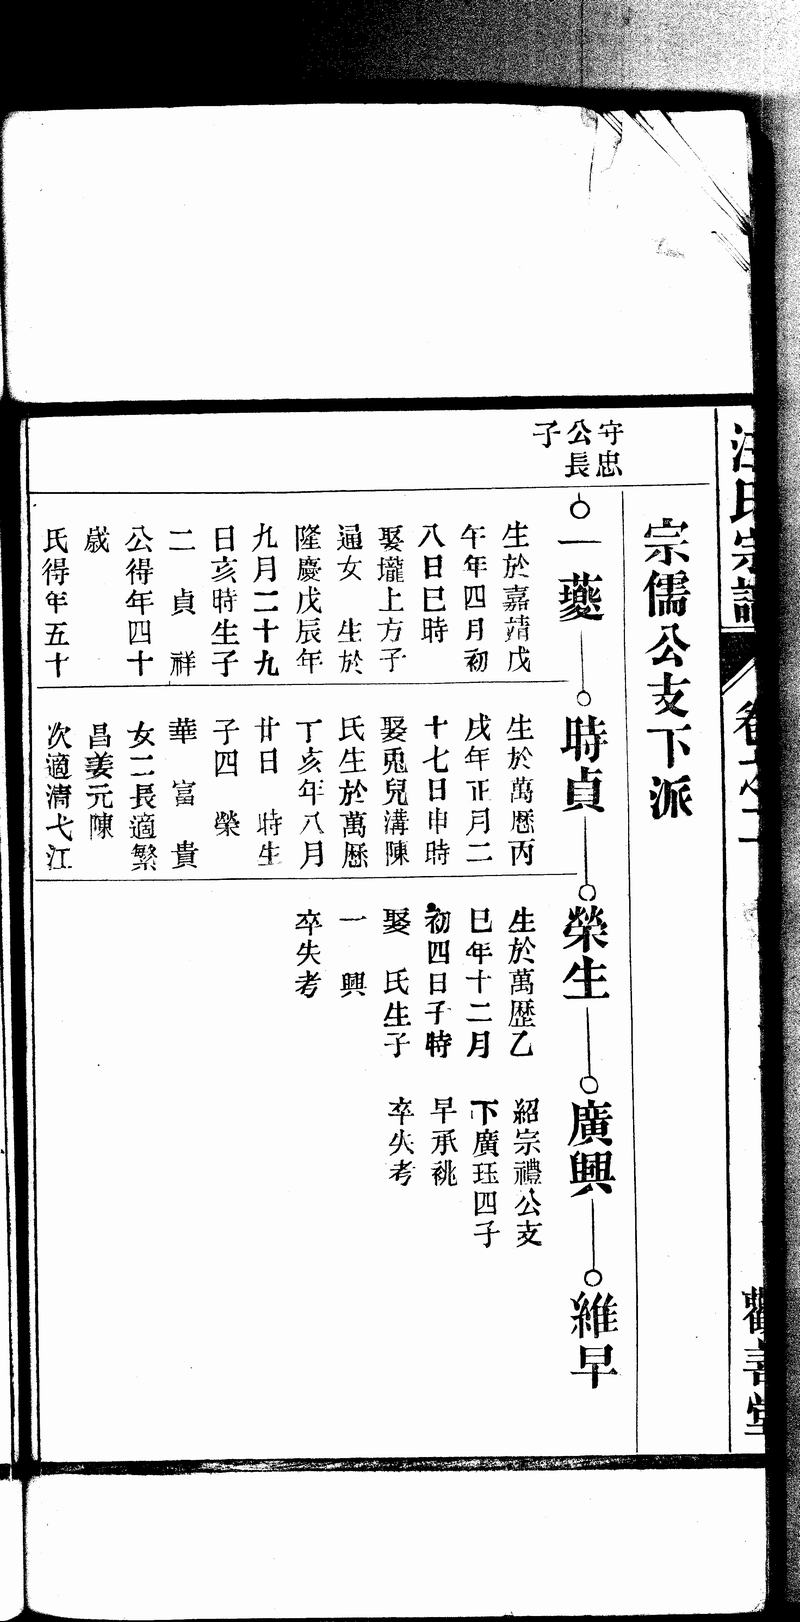 汪氏宗譜
卷之二
觀善堂
宗儒公支下派
守忠
公長
子
一夔
生於嘉靖戊
午年四月初
八日巳時
娶壠上方子
通女　生於
隆慶戊辰年
九月二十九
日亥時生子
二　貞　祥
公得年四十
歲
氏得年五十
時貞
生於萬曆丙
戌年正月二
十七日申時
娶兎兒溝陳
氏生於萬曆
丁亥年八月
廿日　時生
子四　榮
華　富　貴
女二長適繁
昌姜元陳
次適清弋江
榮生
生於萬歷乙
巳年十二月
初四日子時
娶　氏生子
一　興
卒失考
廣興
紹宗禮公支
下廣珏四子
早承祧
卒失考
維早